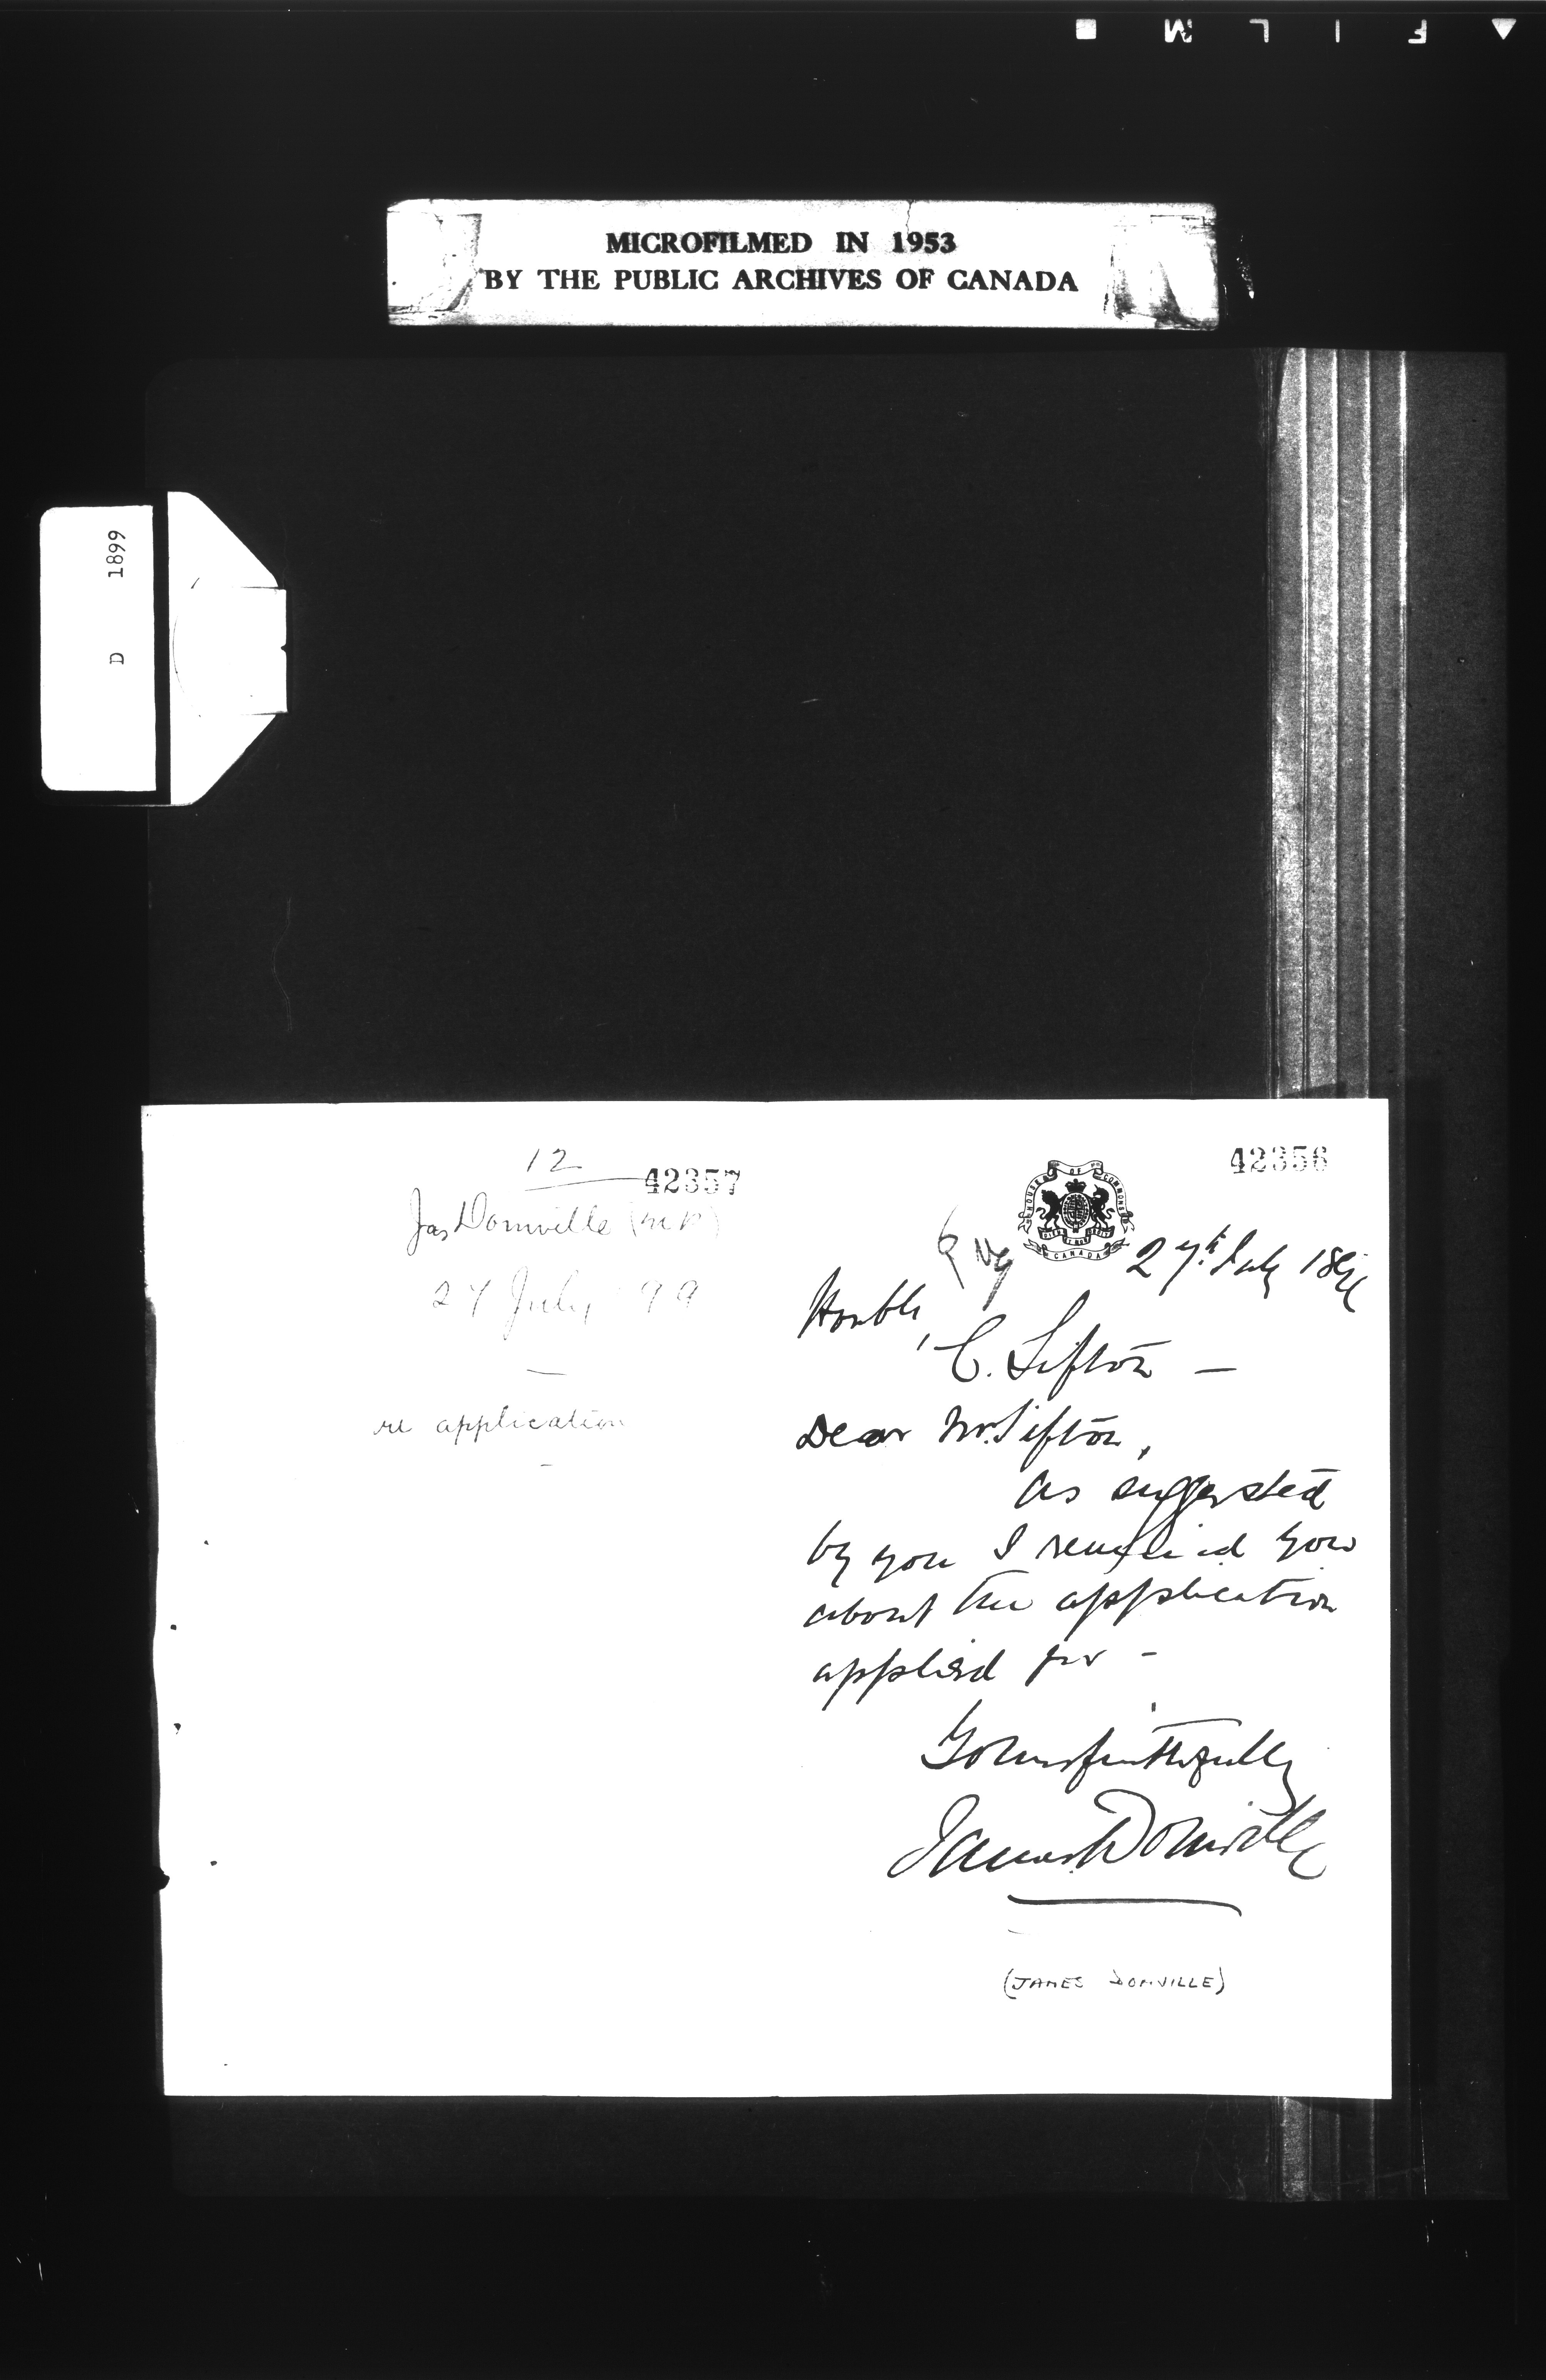 FILM
MICROFILMED IN 1953
BY THE PUBLIC ARCHIVES OF CANADA
D 1899
12
42357
Jas Domville (MP)
27 July 99
re application
42356
HOUSE OF COMMONS
CANADA
27th July 1899
Honble
C. Sifton —
Dear Mr. Sifton,
As suggested
by you I remind you
about the application
applied for -
Yours faithfully
James Domville
(JAMES DOMVILLE)